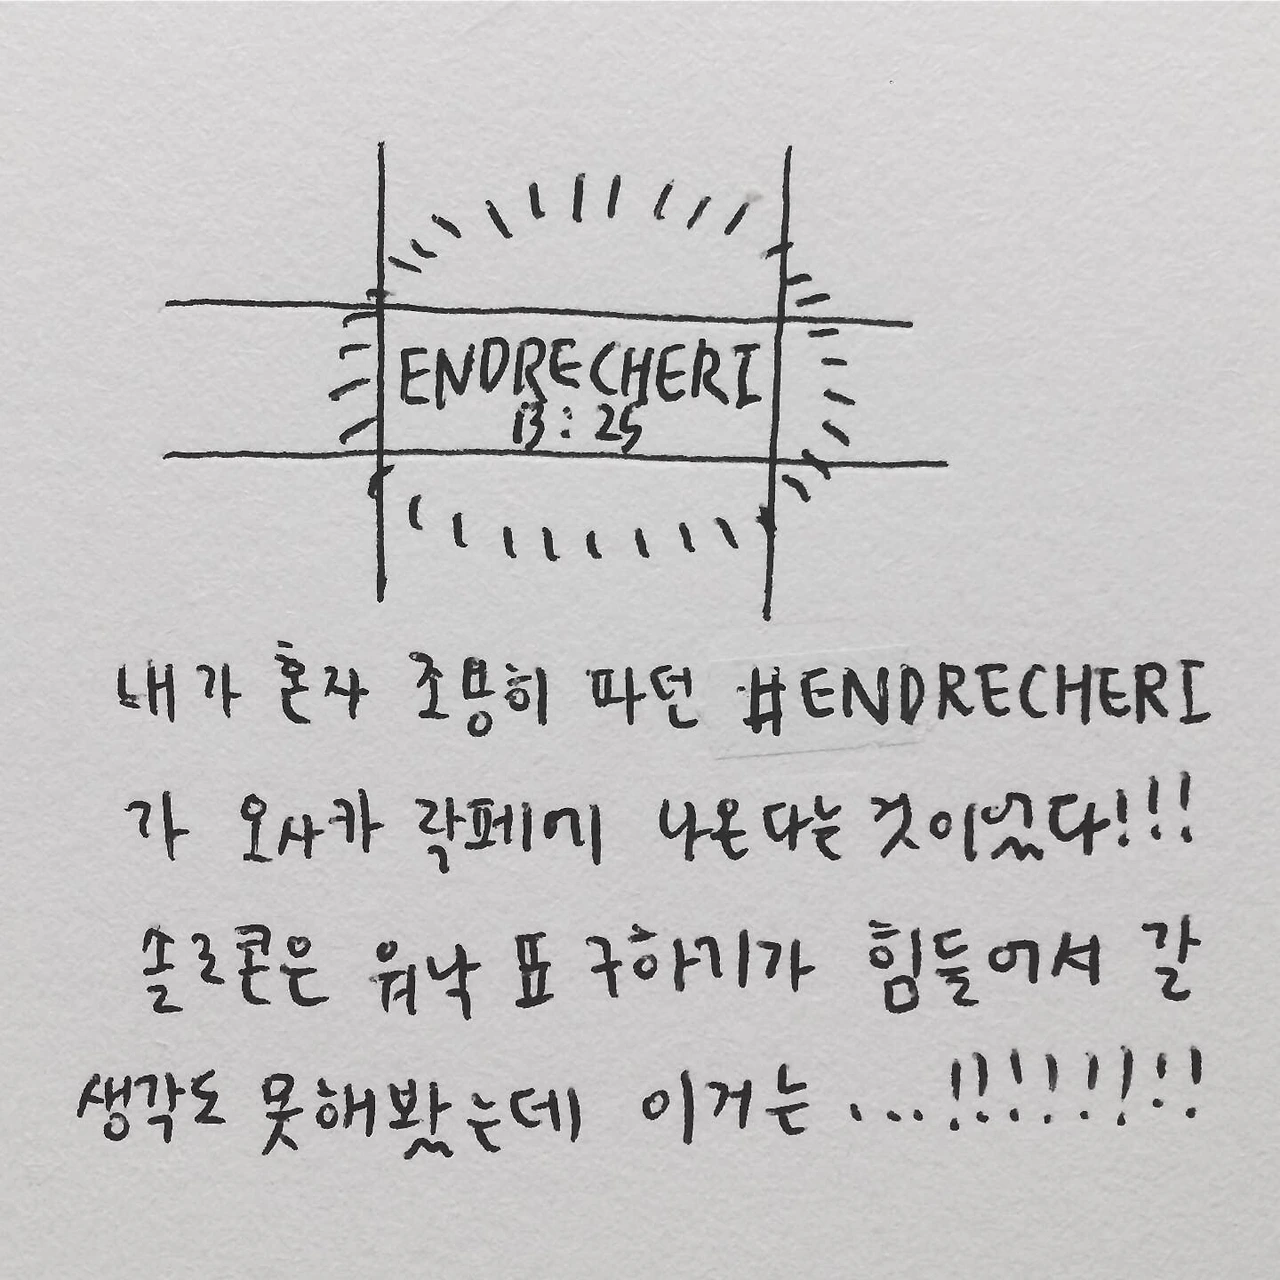 ENDRECHERI
13:25
내가 혼자 조용히 파던 #ENDRECHERI
가 오사카 락페에 나온다는 것이었다!!!
솔로콘은 워낙 표 구하기가 힘들어서 갈
생각도 못해봤는데 이거는...!!!!!!!!